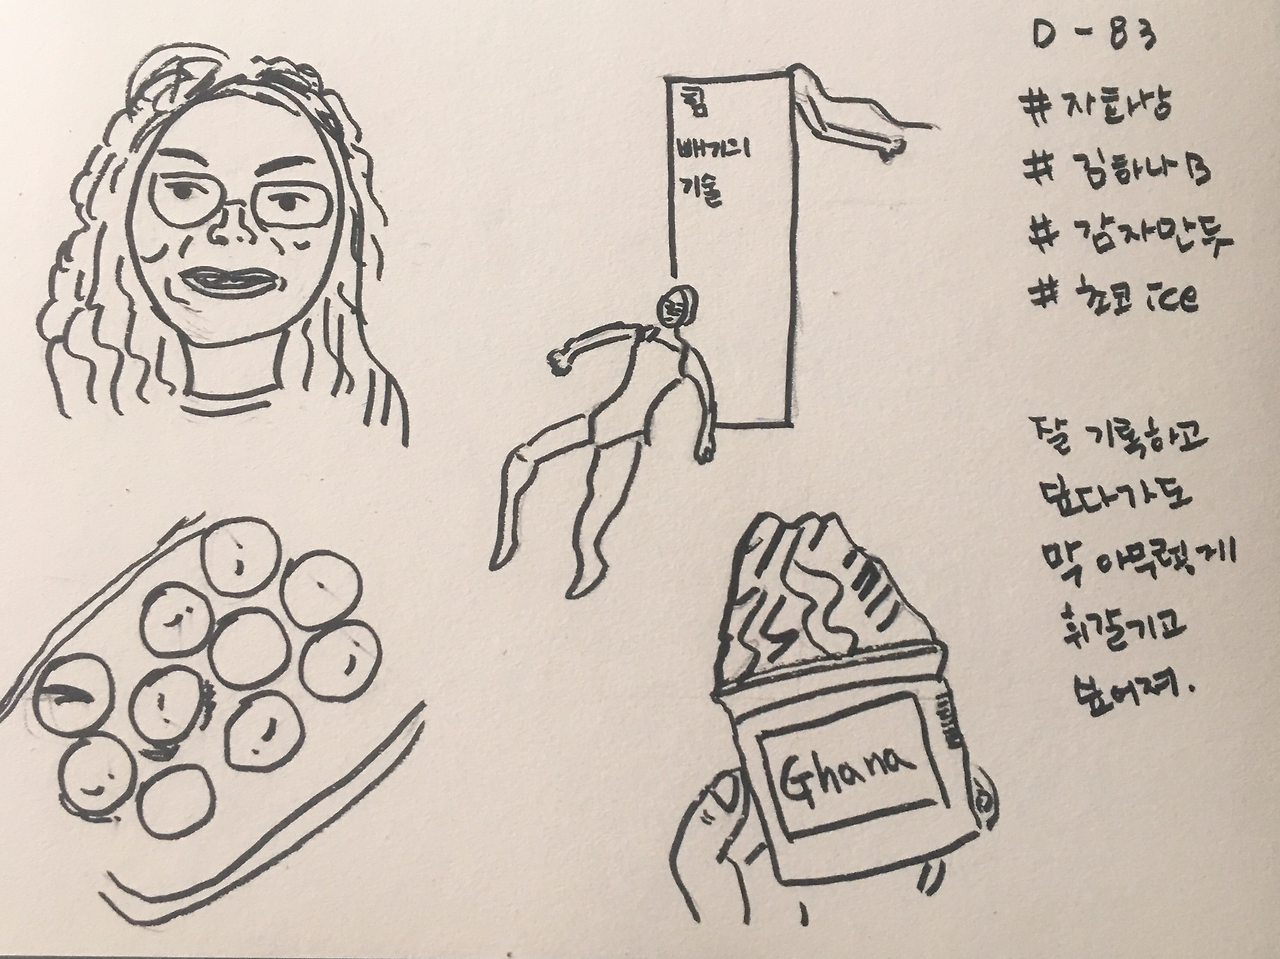 힘
빼기의
기술
D-83
# 자화상
# 김하나 B
# 감자만두
# 초코 ice
잘 기록하고
싶다가도
막 아무렇게
휘갈기고
싶어져.
Ghana